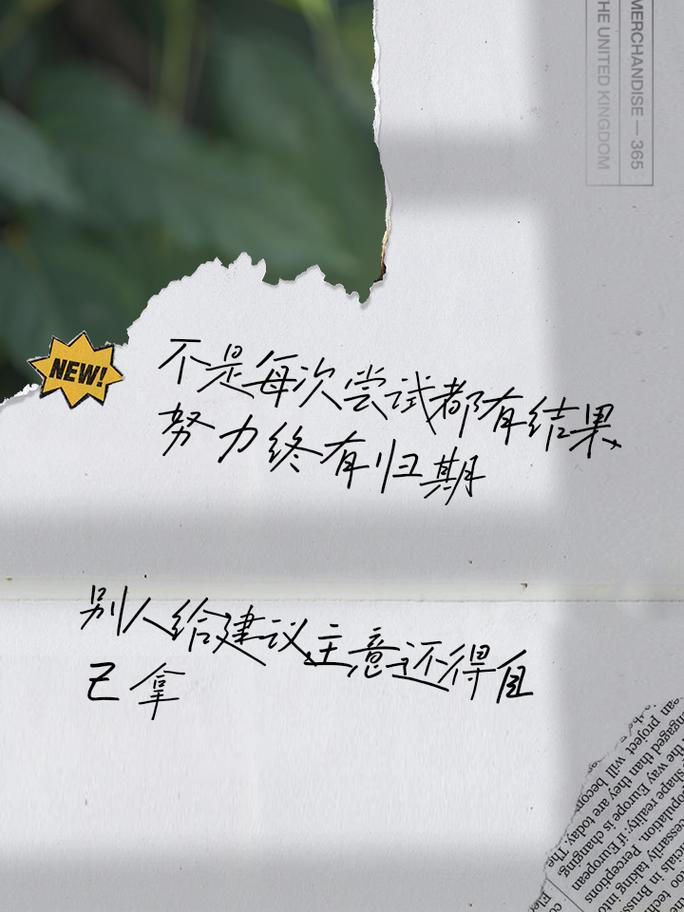 MERCHANDISE — 365
THE UNITED KINGDOM
NEW!
不是每次尝试都有结果
努力终有归期
别人给建议主意还得自
己拿
project will becom
engaged than they are today. The
the way Europe is changing
shape reality: if European
population. Perceptions
necessarily taking into
officials in Bruss
too tech